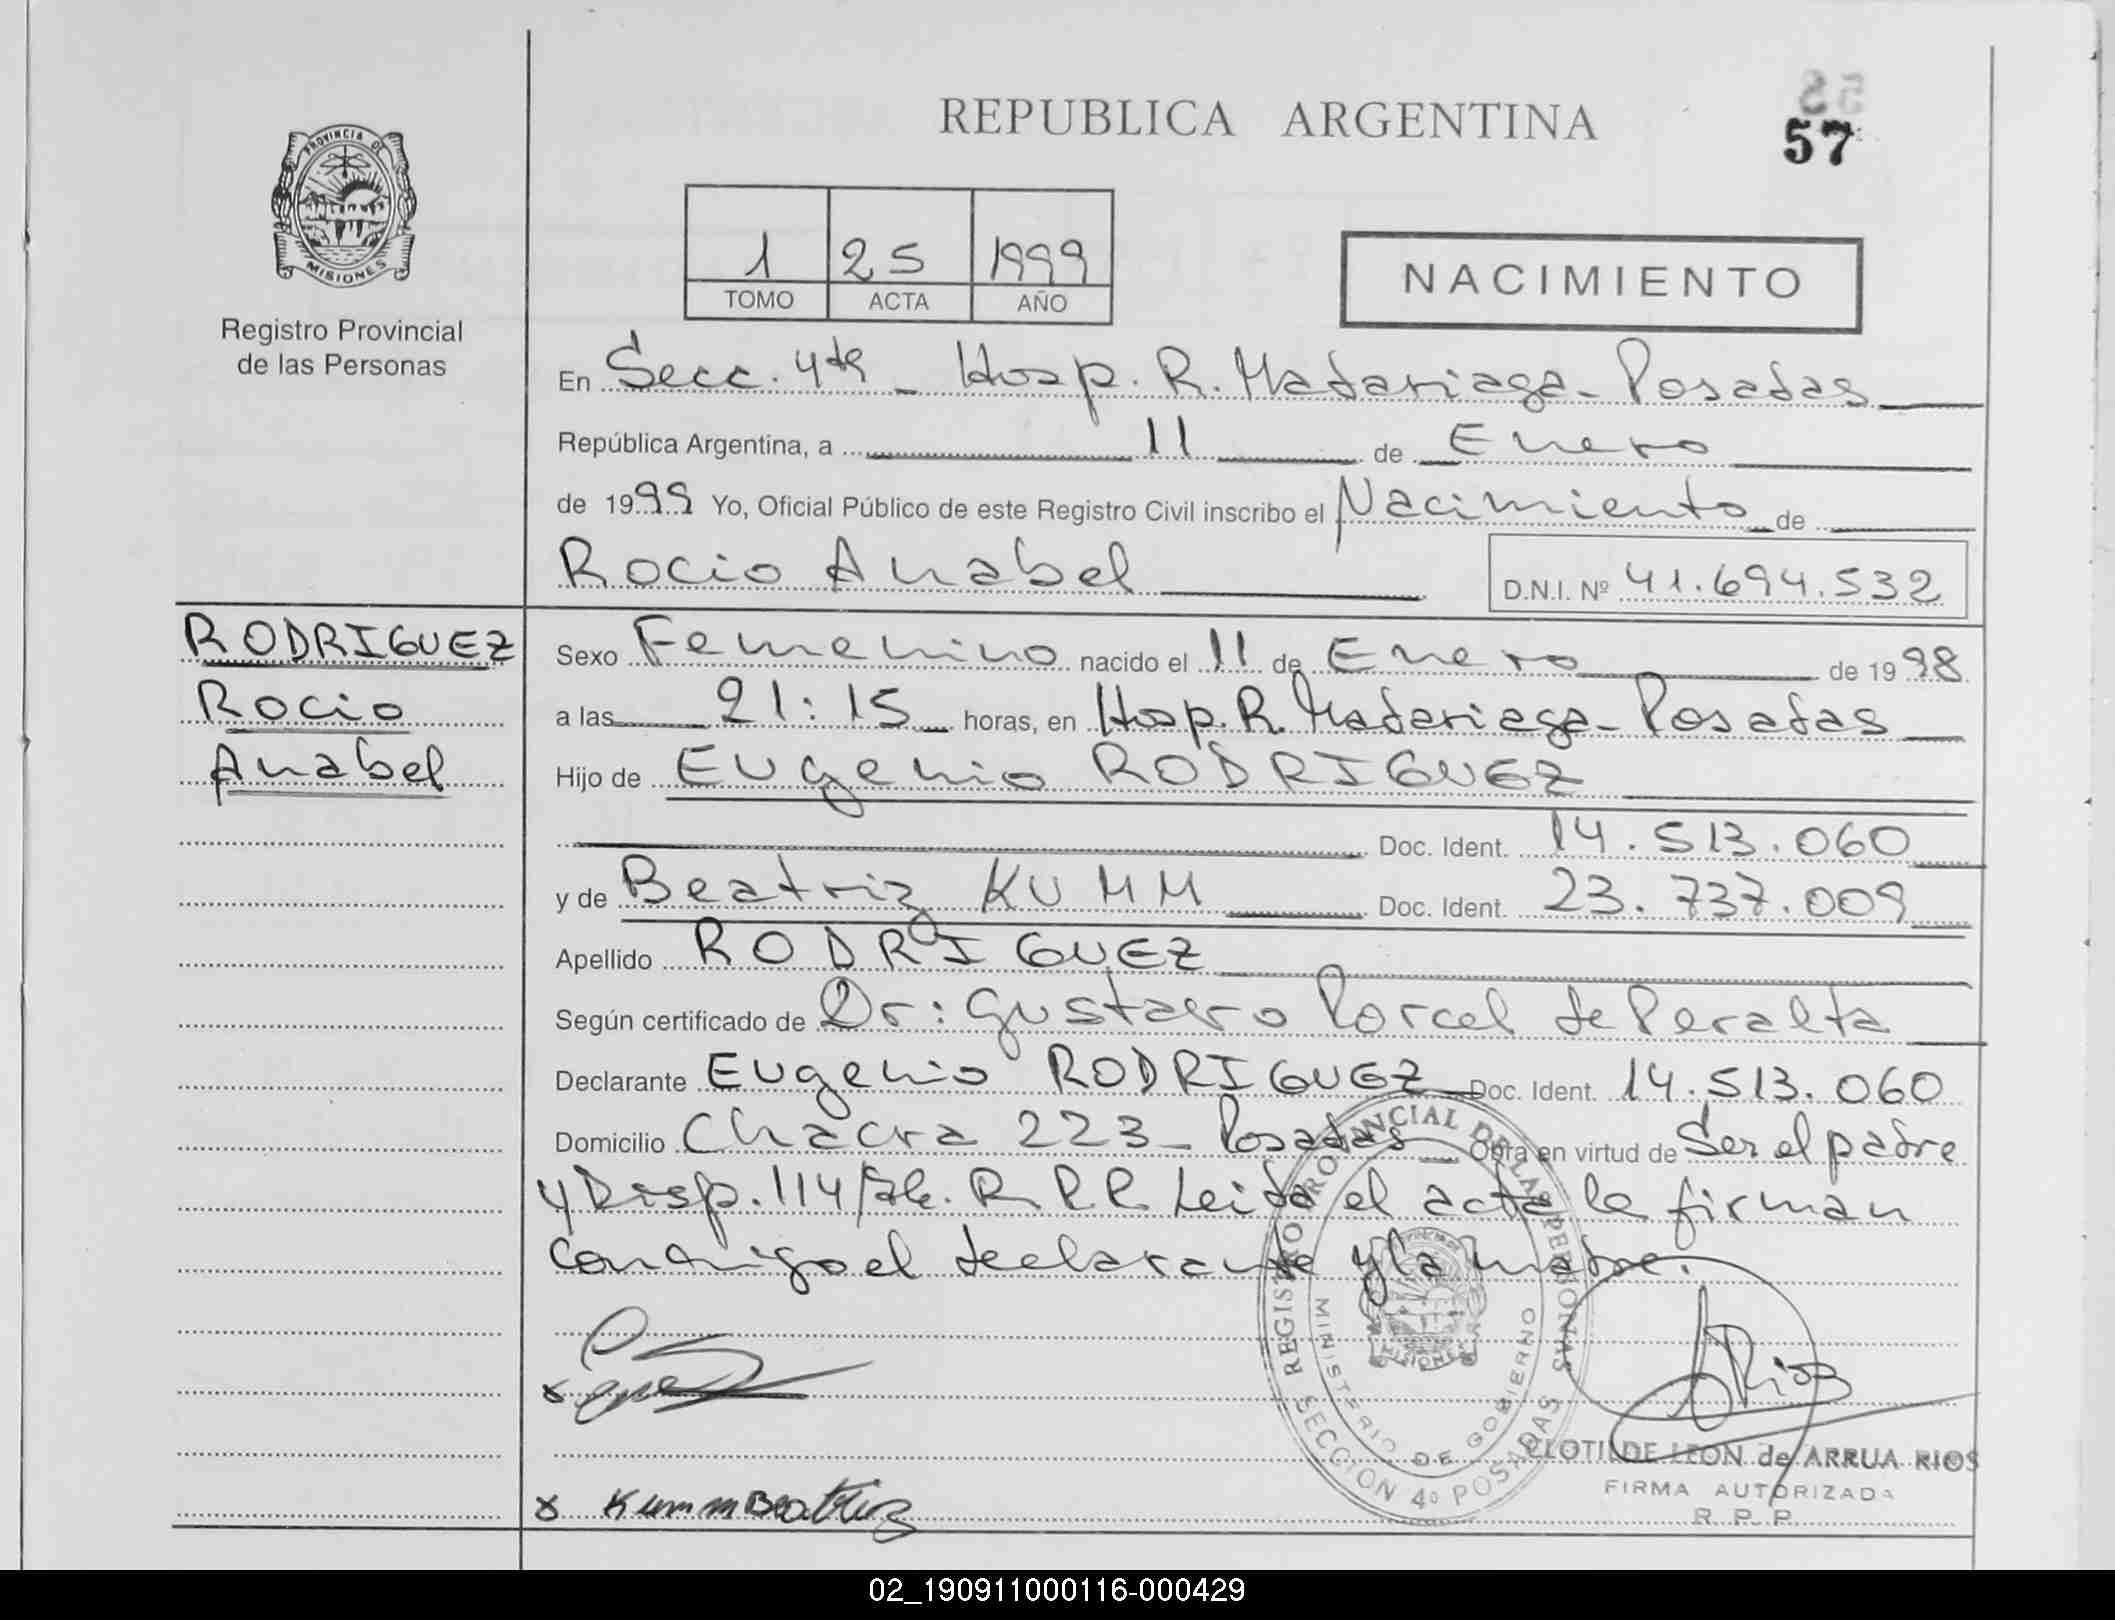 REPUBLICA ARGENTINA
57
PROVINCIA DE
MISIONES
Registro Provincial
de las Personas
1 25 1999
TOMO ACTA AÑO
NACIMIENTO
En Secc. 4ta - Hosp. R. Madariaga - Posadas
República Argentina, a 11 de Enero
de 1999 Yo, Oficial Público de este Registro Civil inscribo el Nacimiento de
Rocio Anabel D.N.I. Nº 41.694.532
RODRIGUEZ
Rocio
Anabel
Sexo Femenino nacido el 11 de Enero de 1998
a las 21:15 horas, en Hosp. R. Madariaga - Posadas
Hijo de Eugenio RODRIGUEZ
Doc. Ident. 14.513.060
y de Beatriz KUMM Doc. Ident. 23.737.009
Apellido RODRIGUEZ
Según certificado de Dr: Gustavo Porcel de Peralta
Declarante Eugenio RODRIGUEZ Doc. Ident. 14.513.060
Domicilio Chacra 223 - Posadas Obra en virtud de Ser el padre
y Disp. 114/ R.P.P. Leida el acta la firman
conmigo el declarante y la madre.
REGISTRO PROVINCIAL DE LAS PERSONAS
MINISTERIO DE GOBIERNO
SECCION 4º POSADAS
Rios
CLOTILDE LEON de ARRUA RIOS
FIRMA AUTORIZADA
R. P. P.
x Kumm Beatriz
02_190911000116-000429